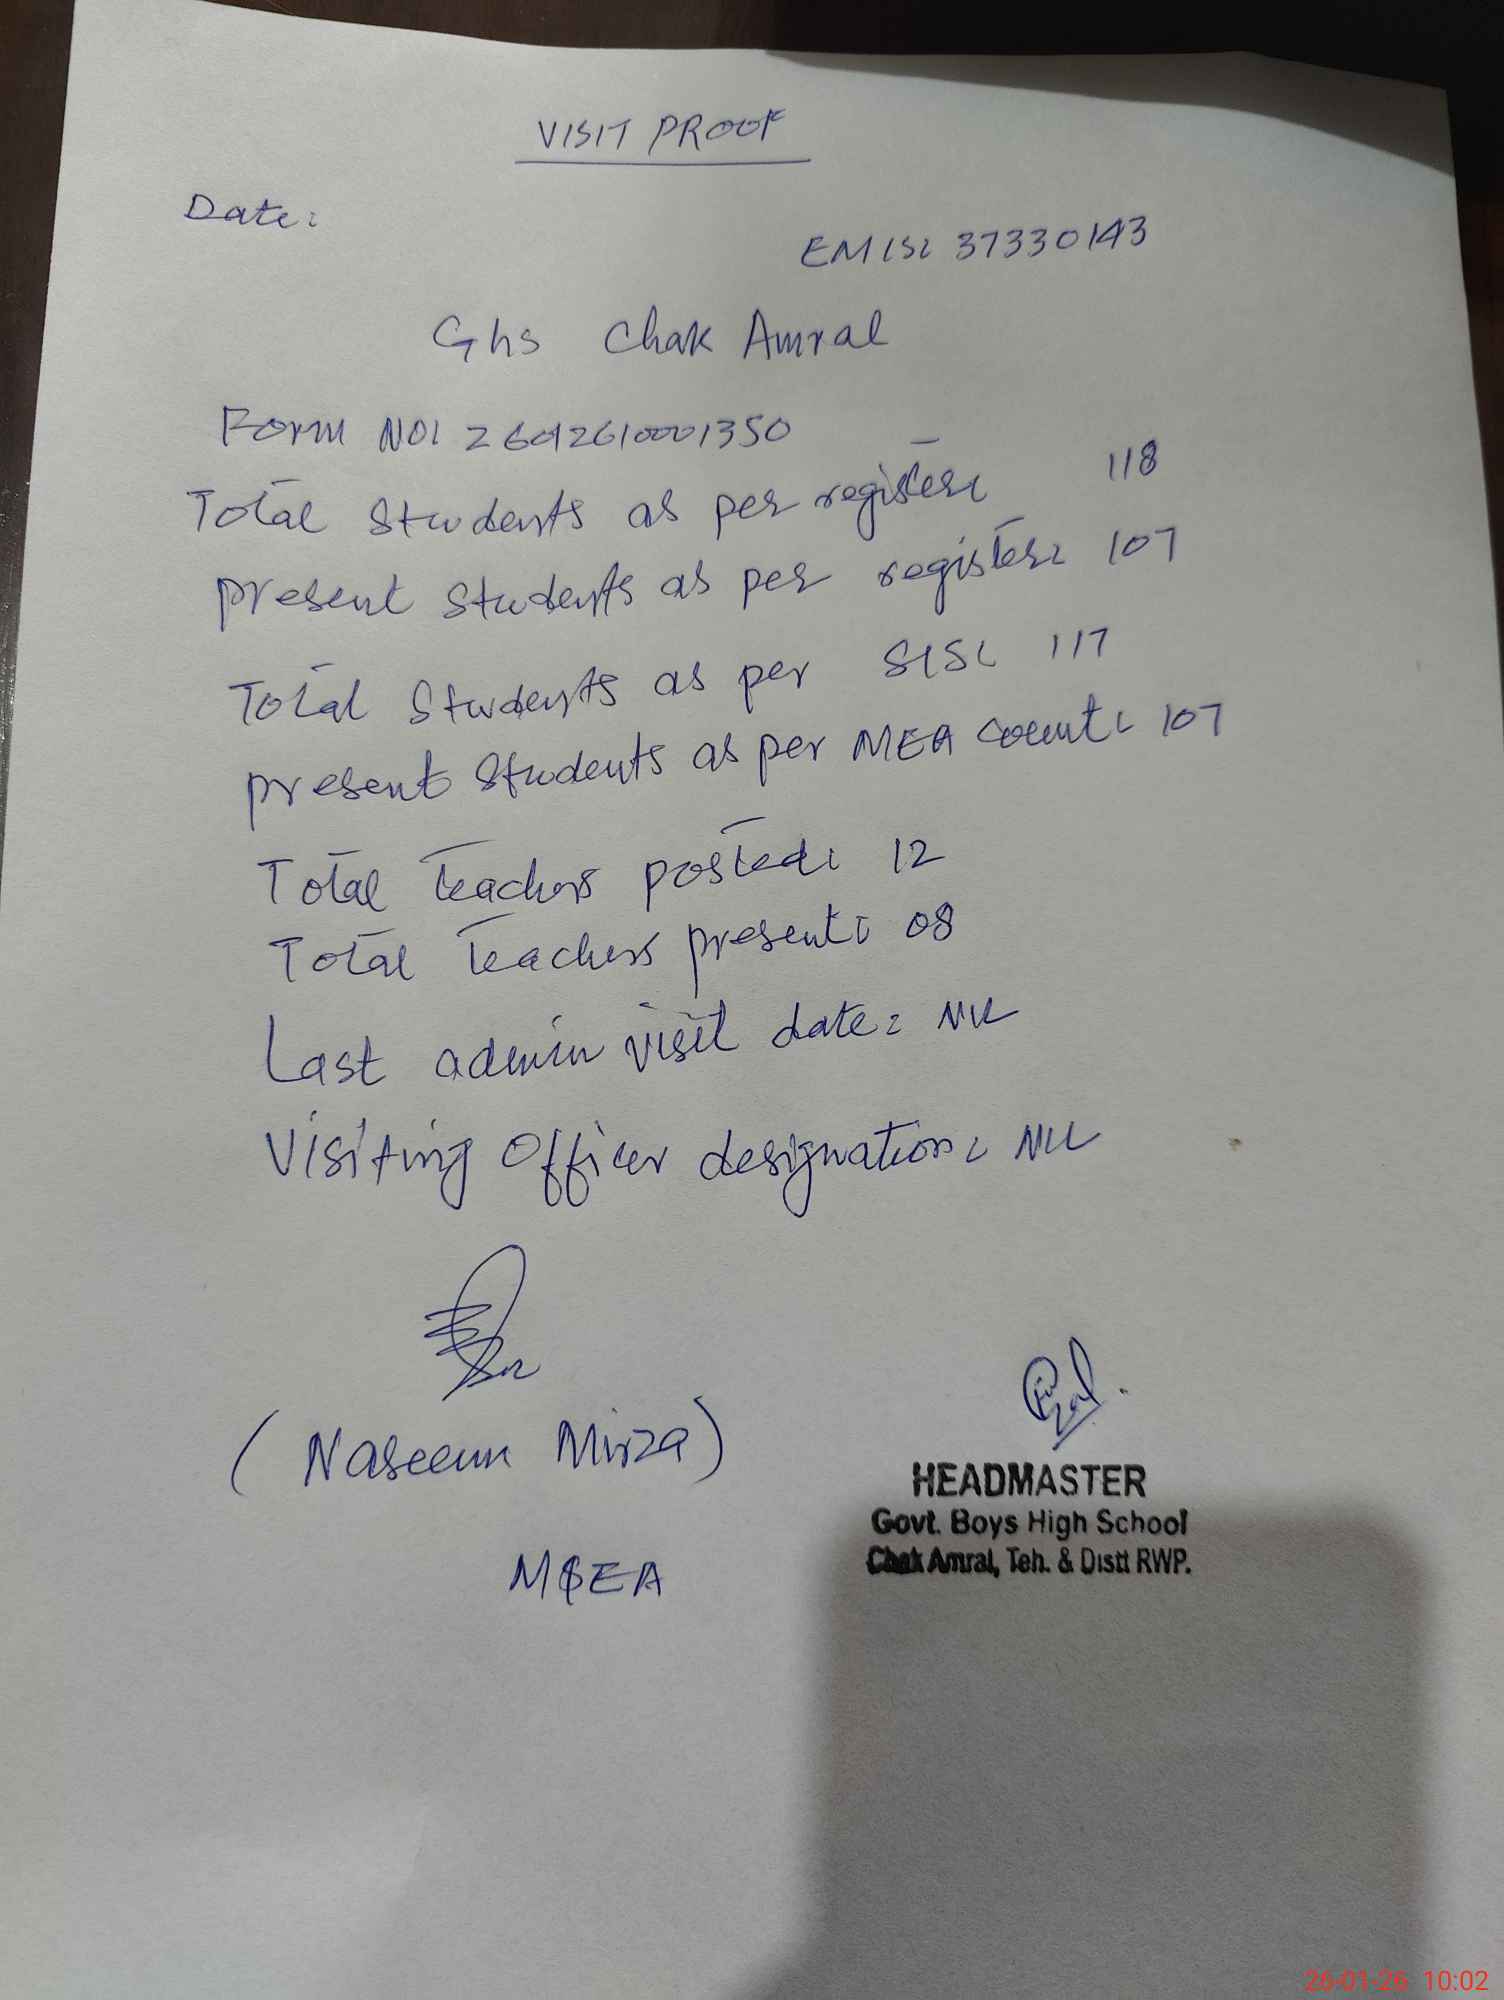 VISIT PROOF
Date:
EMIS: 37330143
Ghs Chak Amral
Form NO: 26012610001350
Total Students as per register: 118
present students as per register: 107
Total Students as per SIS: 117
present students as per MEA count: 107
Total teachers posted: 12
Total teachers present: 08
Last admin visit date: NIL
Visiting Officer designation: NIL
(Naseem Mirza)
MEA
HEADMASTER
Govt. Boys High School
Chak Amral, Teh. & Distt RWP.
26-01-26 10:02